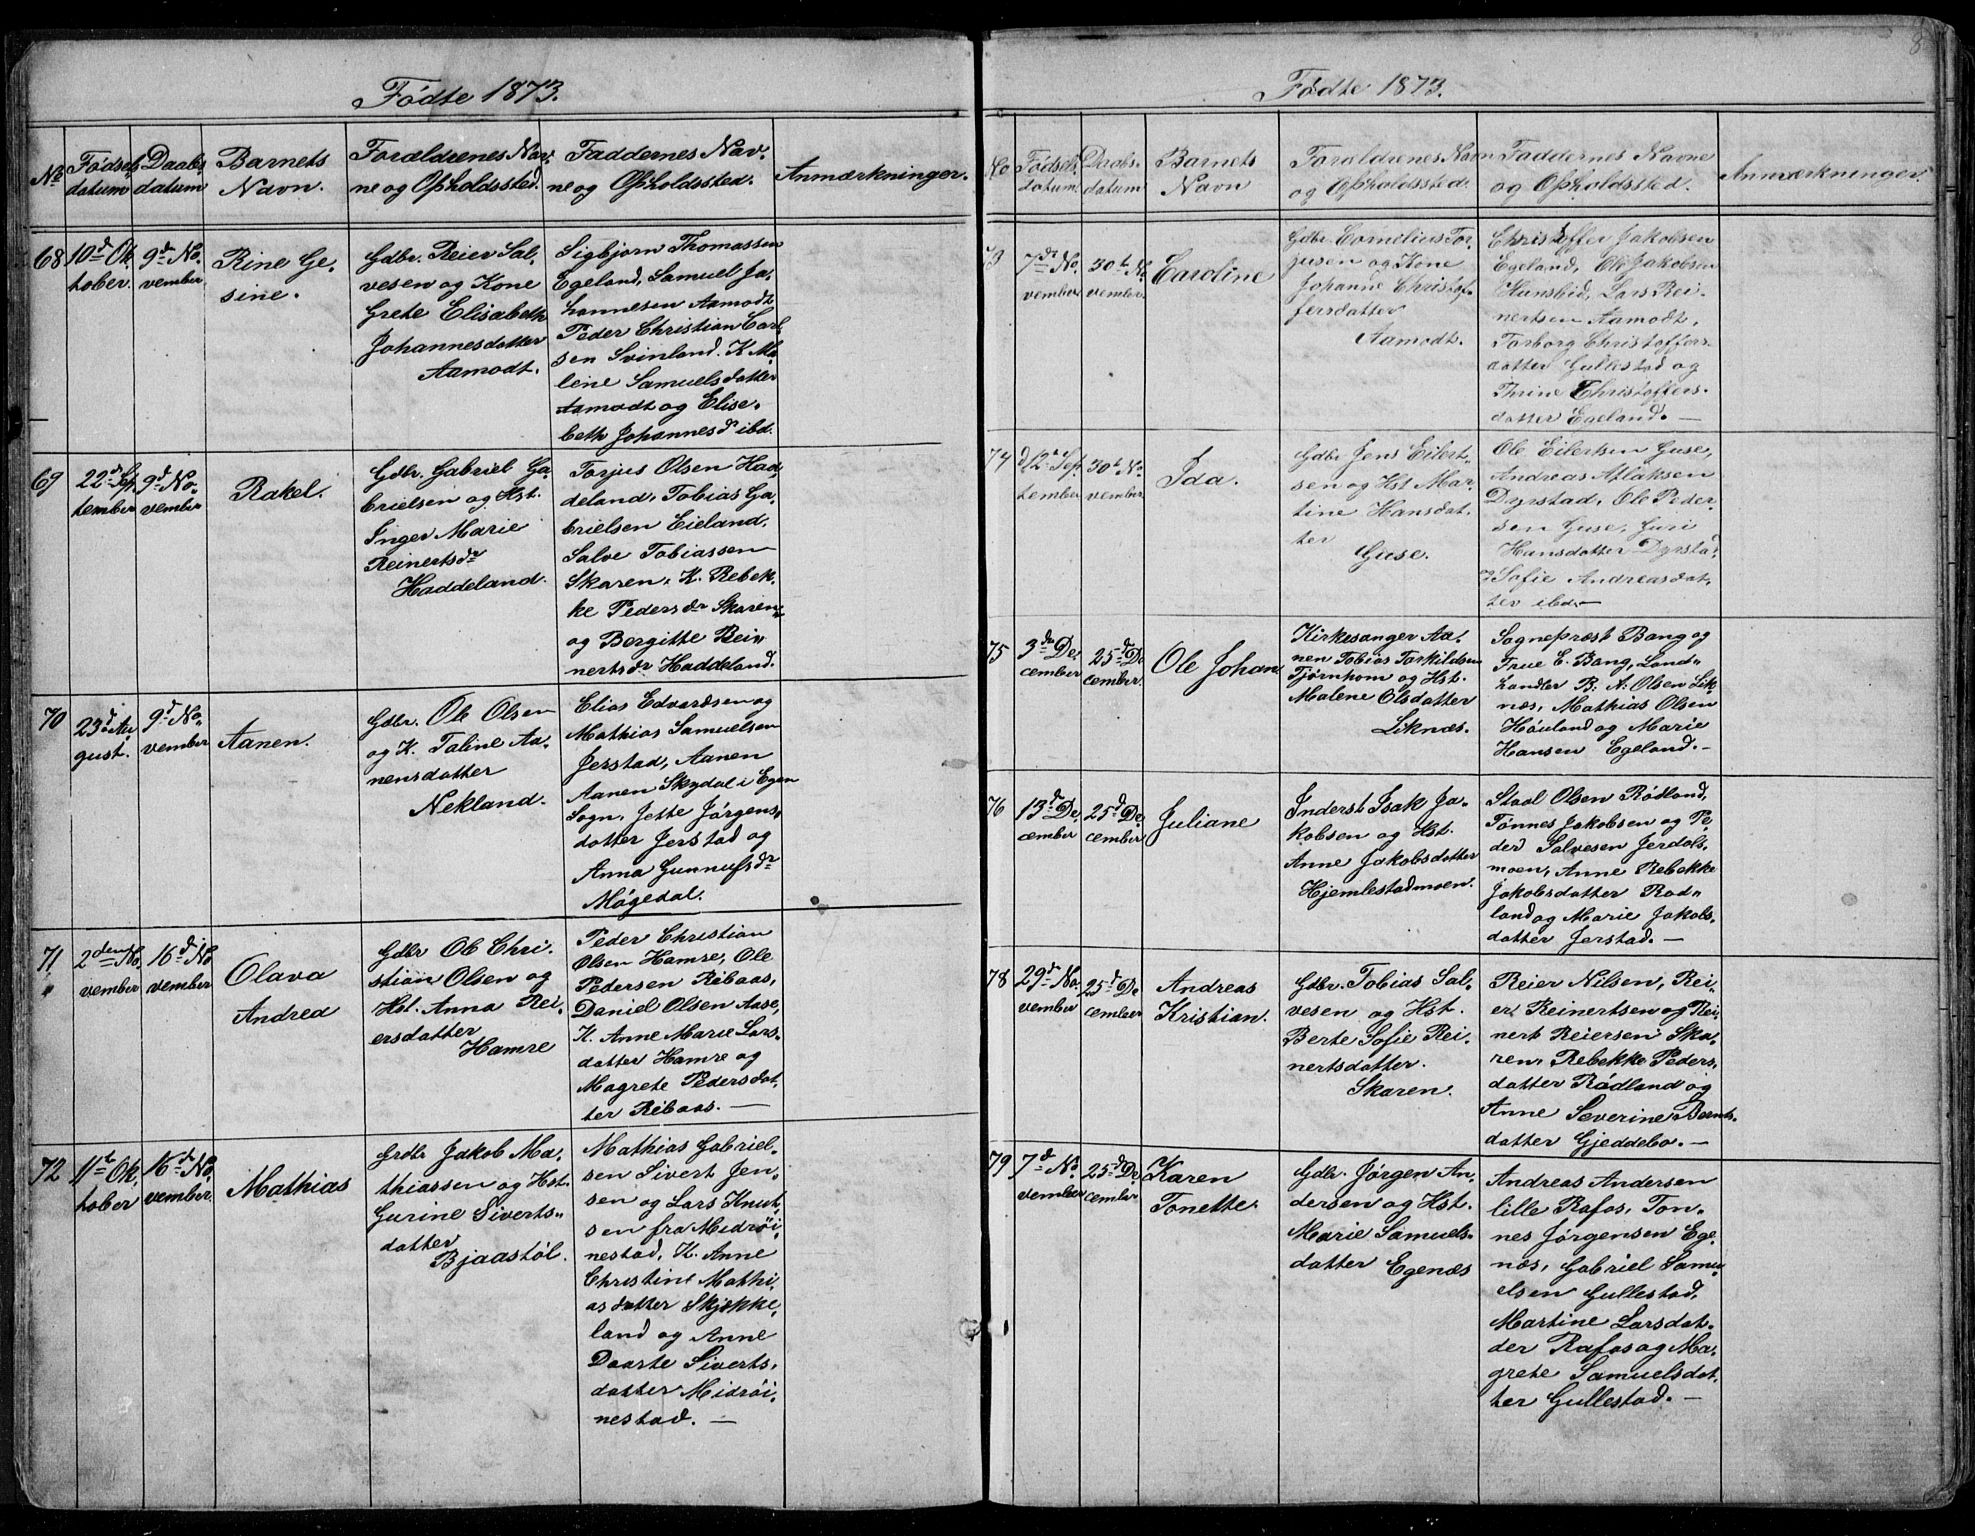 Fødte 1873.
No
Fødsels
datum
Daabs
datum
Barnets
Navn.
Forældrenes Nav,
ne og Opholdssted.
Faddernes Nav,
ne og Opholdssted.
Anmærkninger.
68
10d Ok,
tober.
9d No,
vember
Rine Ge,
sine.
Gdbr. Reier Sal,
vesen og Kone
Grete Elisabeth
Johannesdatter
Aamodt.
Sigbjørn Thomassen
Egeland, Samuel Jo,
hannesen Aamodt
Peder Christian Carl,
sen Svinland. K. Ma,
lene Samuelsdatter
Aamodt og Elise,
beth Johannesd ibd.
69
22d Sep,
tember
9d No,
vember
Rakel.
Gdbr. Gabriel Ga,
brielsen og Hst.
Inger Marie
Reinertsdr
Haddeland.
Torjus Olsen Had,
deland, Tobias Ga,
brielsen Eieland,
Salve Tobiassen
Skaren, K. Rebek,
ke Pedersdr Skaren
og Bergitte Rei,
nertsdr Haddeland.
70
23d Au,
gust.
9d No,
vember
Aanen.
Gdbr. Ole Olsen
og K. Taline Aa,
nensdatter
Nekland.
Elias Edvardsen og
Mathias Samuelsen
Jerstad, Aanen
Aanen Skydal i Egen
Sogn, Jette Jørgens,
datter Jerstad og
Anna Gunnufsdr
Møgedal.
71
2den No,
vember
16d No
vember
Olava
Andrea
Gdbr Ob Chri.
stian Olsen og
Hst. Anna Rei,
ersdatter
Hamre
Peder Christian
Olsen Hamre, Ole
Pedersen Ribaas,
Daniel Olsen Aase,
K. Anne Marie Lars,
datter Hamre og
Magrete Pedersdat,
ter Ribaas. —
72
11te Ok,
tober
16d No,
vember.
Mathias
Grdbr Jakob Ma,
thiassen og Hst.
Gurine Siverts,
datter
Bjaastøl.
Mathias Gabriel,
sen Sivert Jen,
sen og Lars Knut,
sen fra Midrøi,
nestad, K. Anne
Christine Mathi,
asdatter Skjekke,
land og Anne
Daarte Siverts,
datter Midrøi,
nestad. —
8
Fødte 1873.
No
Fødsels
datum.
Daabs.
datum.
Barnets
Navn
Forældrenes Navn
og Opholdssted.
Faddernes Navne
og Opholdssted.
Anmærkninger.
73
7de No,
vember
30te No
vember.
Caroline
Gdbr Cornelius Tor,
jusen og Kone
Johanne Christof,
fersdatter
Aamodt.
Christoffer Jakobsen
Egeland, Ole Jakobsen
Hunsbid, Lars Rei,
nertsen Aamodt,
Torborg Christoffers
datter Gullestad og
Thrine Christoffers.
datter Egeland. —
74
d. 12te Sep,
tember
30te No
vember
Ida.
Gdbr Jens Eilert,
sen og Hst Mar,
tine Hansdat,
ter
Guse.
Ole Eilertsen Guse,
Andreas Atlaksen
Dyrstad, Ole Peder,
sen Guse, Guri
Hansdatter Dyrstad
og Sofie Andreasdat,
ter ibd. —
75
3de De,
cember
25de De
cember.
Ole Johan
Kirkesanger Aa,
nen Tobias Torkildsen
Tjørnhom og Hst.
Malene Olsdatter
Liknæs.
Sognepræst Bang og
Frue E. Bang, Land,
handler B. A. Olsen Lik,
næs, Mathias Olsen
Houland og Marie
Hansen Egeland. —
76
13de De,
cember
25de De
cember
Juliane
Inderst Isak Ja,
kobsen og Hst.
Anne Jakobsdatter
Hjemlestadmoen.
Staal Olsen Rødland,
Tønnes Jakobsen og Pe,
der Salvesen Jerdals,
moen, Anne Rebekke
Jakobsdatter Rød,
land og Marie Jakobs,
datter Jerstad. —
78
29de No,
vember
25de De
cember
Andreas
Kristian.
Gdbr. Tobias Sal,
vesen og Hst.
Berte Sofie Rei,
nertsdatter.
Skaren.
Reier Nilsen, Rei,
er Reinertsen og Rei,
nert Reiersen Ska,
ren, Rebekke Peders,
datter Rødland og
Anne Severine Bernts,
datter Gjeddebo. —
79
7de No,
vember
25de De,
cember
Karen
Tonette.
Gdbr. Jørgen An,
dersen og Hst.
Marie Samuels,
datter Egenæs
Andreas Andersen
lille Rafos, Ton,
nes Jørgensen Ege,
næs, Gabriel Samu,
elsen Gullestad,
Martine Larsdat,
der Rafos og Ma,
grete Samuelsdat,
ter Gullestad. —